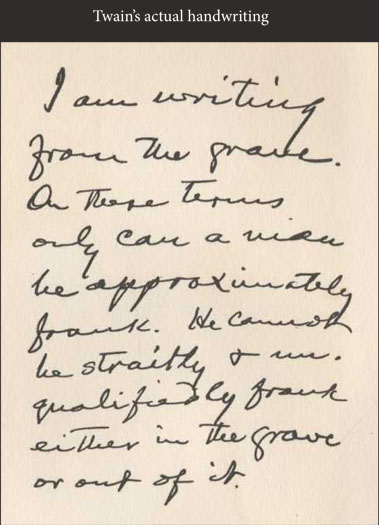 Twain's actual handwriting
I am writing
from the grave.
On these terms
only can a man
be approximately
frank. He cannot
be straitly & un-
qualifiedly frank
either in the grave
or out of it.